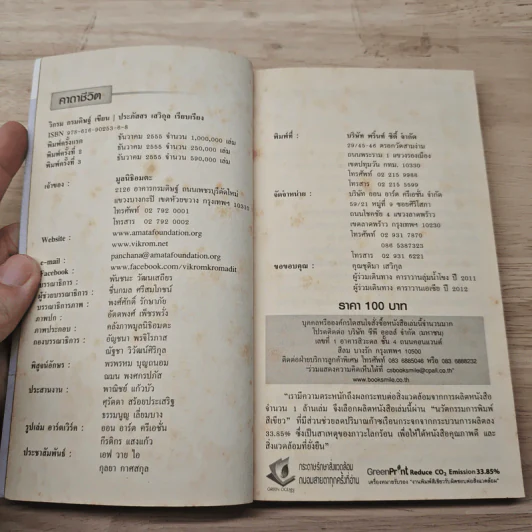 คาถาชีวิต
วิกรม กรมดิษฐ์ เขียน | ประภัสสร เสวิกุล เรียบเรียง
ISBN 978-616-90253-8-8
พิมพ์ครั้งแรก ธันวาคม 2555 จำนวน 1,000,000 เล่ม
พิมพ์ครั้งที่ 2 ธันวาคม 2555 จำนวน 250,000 เล่ม
พิมพ์ครั้งที่ 3 ธันวาคม 2555 จำนวน 590,000 เล่ม
เจ้าของ : มูลนิธิอมตะ
2126 อาคารกรมดิษฐ์ ถนนเพชรบุรีตัดใหม่
แขวงบางกะปิ เขตห้วยขวาง กรุงเทพฯ 10310
โทรศัพท์ 02 792 0001
โทรสาร 02 792 0002
Website : www.amatafoundation.org
www.vikrom.net
e-mail : panchana@amatafoundation.org
Facebook : www.facebook.com/vikromkromadit
บรรณาธิการ : พันชนะ วัฒนเสถียร
ผู้ช่วยบรรณาธิการ : ชื่นกมล ศรีสมโภชน์
บรรณาธิการภาพ : พงศ์ศักดิ์ รักษาภัย
ภาพปก : อัตตพงศ์ เพียรพรั่ง
ภาพประกอบ : คลังภาพมูลนิธิอมตะ
กองบรรณาธิการ : อัญชนา พรจิโรภาส
ณัฐชา วิวัฒน์ศิริกุล
พิสูจน์อักษร : พรพรหม บุญถนอม
ณมน พงศกรปภัส
ประสานงาน : พาณิชย์ แก้วบัว
ศุรัตดา สร้อยประเสริฐ
ธรรมนูญ เสี่ยมบาง
รูปเล่ม อาร์ตเวิร์ค : ออน อาร์ต ครีเอชั่น
กีรติกร แสงแก้ว
ประชาสัมพันธ์ : เอฟ วาย ไอ
กุลยา กาศสกุล
พิมพ์ที่ : บริษัท พริ้นท์ ซิตี้ จำกัด
29/45-46 ตรอกวัดสามง่าม
ถนนพระราม 1 แขวงรองเมือง
เขตปทุมวัน กทม. 10330
โทรศัพท์ 02 215 9988
โทรสาร 02 215 3599
จัดจำหน่าย : บริษัท ออน อาร์ต ครีเอชั่น จำกัด
59/21 หมู่ที่ 9 ซอยศิริโสภา
ถนนโชคชัย 4 แขวงลาดพร้าว
เขตลาดพร้าว กรุงเทพฯ 10230
โทรศัพท์ 02 931 7870
086 5387323
โทรสาร 02 931 6221
ขอขอบคุณ : คุณชุติมา เสวิกุล
ผู้ร่วมเดินทาง คาราวานลุ่มน้ำโขง ปี 2011
ผู้ร่วมเดินทาง คาราวานเอเชีย ปี 2012
ราคา 100 บาท
บุคคลหรือองค์กรใดสนใจสั่งซื้อหนังสือเล่มนี้จำนวนมาก
โปรดติดต่อ บริษัท ซีพี ออลล์ จำกัด (มหาชน)
เลขที่ 1 อาคารสีวะดล ชั้น 4 ถนนคอนแวนต์
สีลม บางรัก กรุงเทพฯ 10500
ติดต่อฝ่ายบริการลูกค้าพิเศษ โทรศัพท์ 083 6885046 หรือ 083 6888232
ร่วมแสดงความคิดเห็นได้ที่ csbooksmile@cpall.co.th
www.booksmile.co.th
"เรามีความตระหนักถึงผลกระทบต่อสิ่งแวดล้อมจากการผลิตหนังสือ
จำนวน 1 ล้านเล่ม จึงเลือกผลิตหนังสือเล่มนี้ผ่าน "นวัตกรรมการพิมพ์
สีเขียว" ที่มีส่วนช่วยลดปริมาณก๊าซเรือนกระจกจากกระบวนการผลิตลง
33.85% ซึ่งเป็นสาเหตุของภาวะโลกร้อน เพื่อให้ได้หนังสือคุณภาพดี และ
สิ่งแวดล้อมที่ยั่งยืน"
กระดาษรักษ์สิ่งแวดล้อม
ถนอมสายตาทุกครั้งที่อ่าน
GREEN OCEAN
GreenPrint Reduce CO2 Emission 33.85%
เครื่องหมายรับรอง "งานพิมพ์สีเขียวรับผิดชอบต่อสิ่งแวดล้อม"